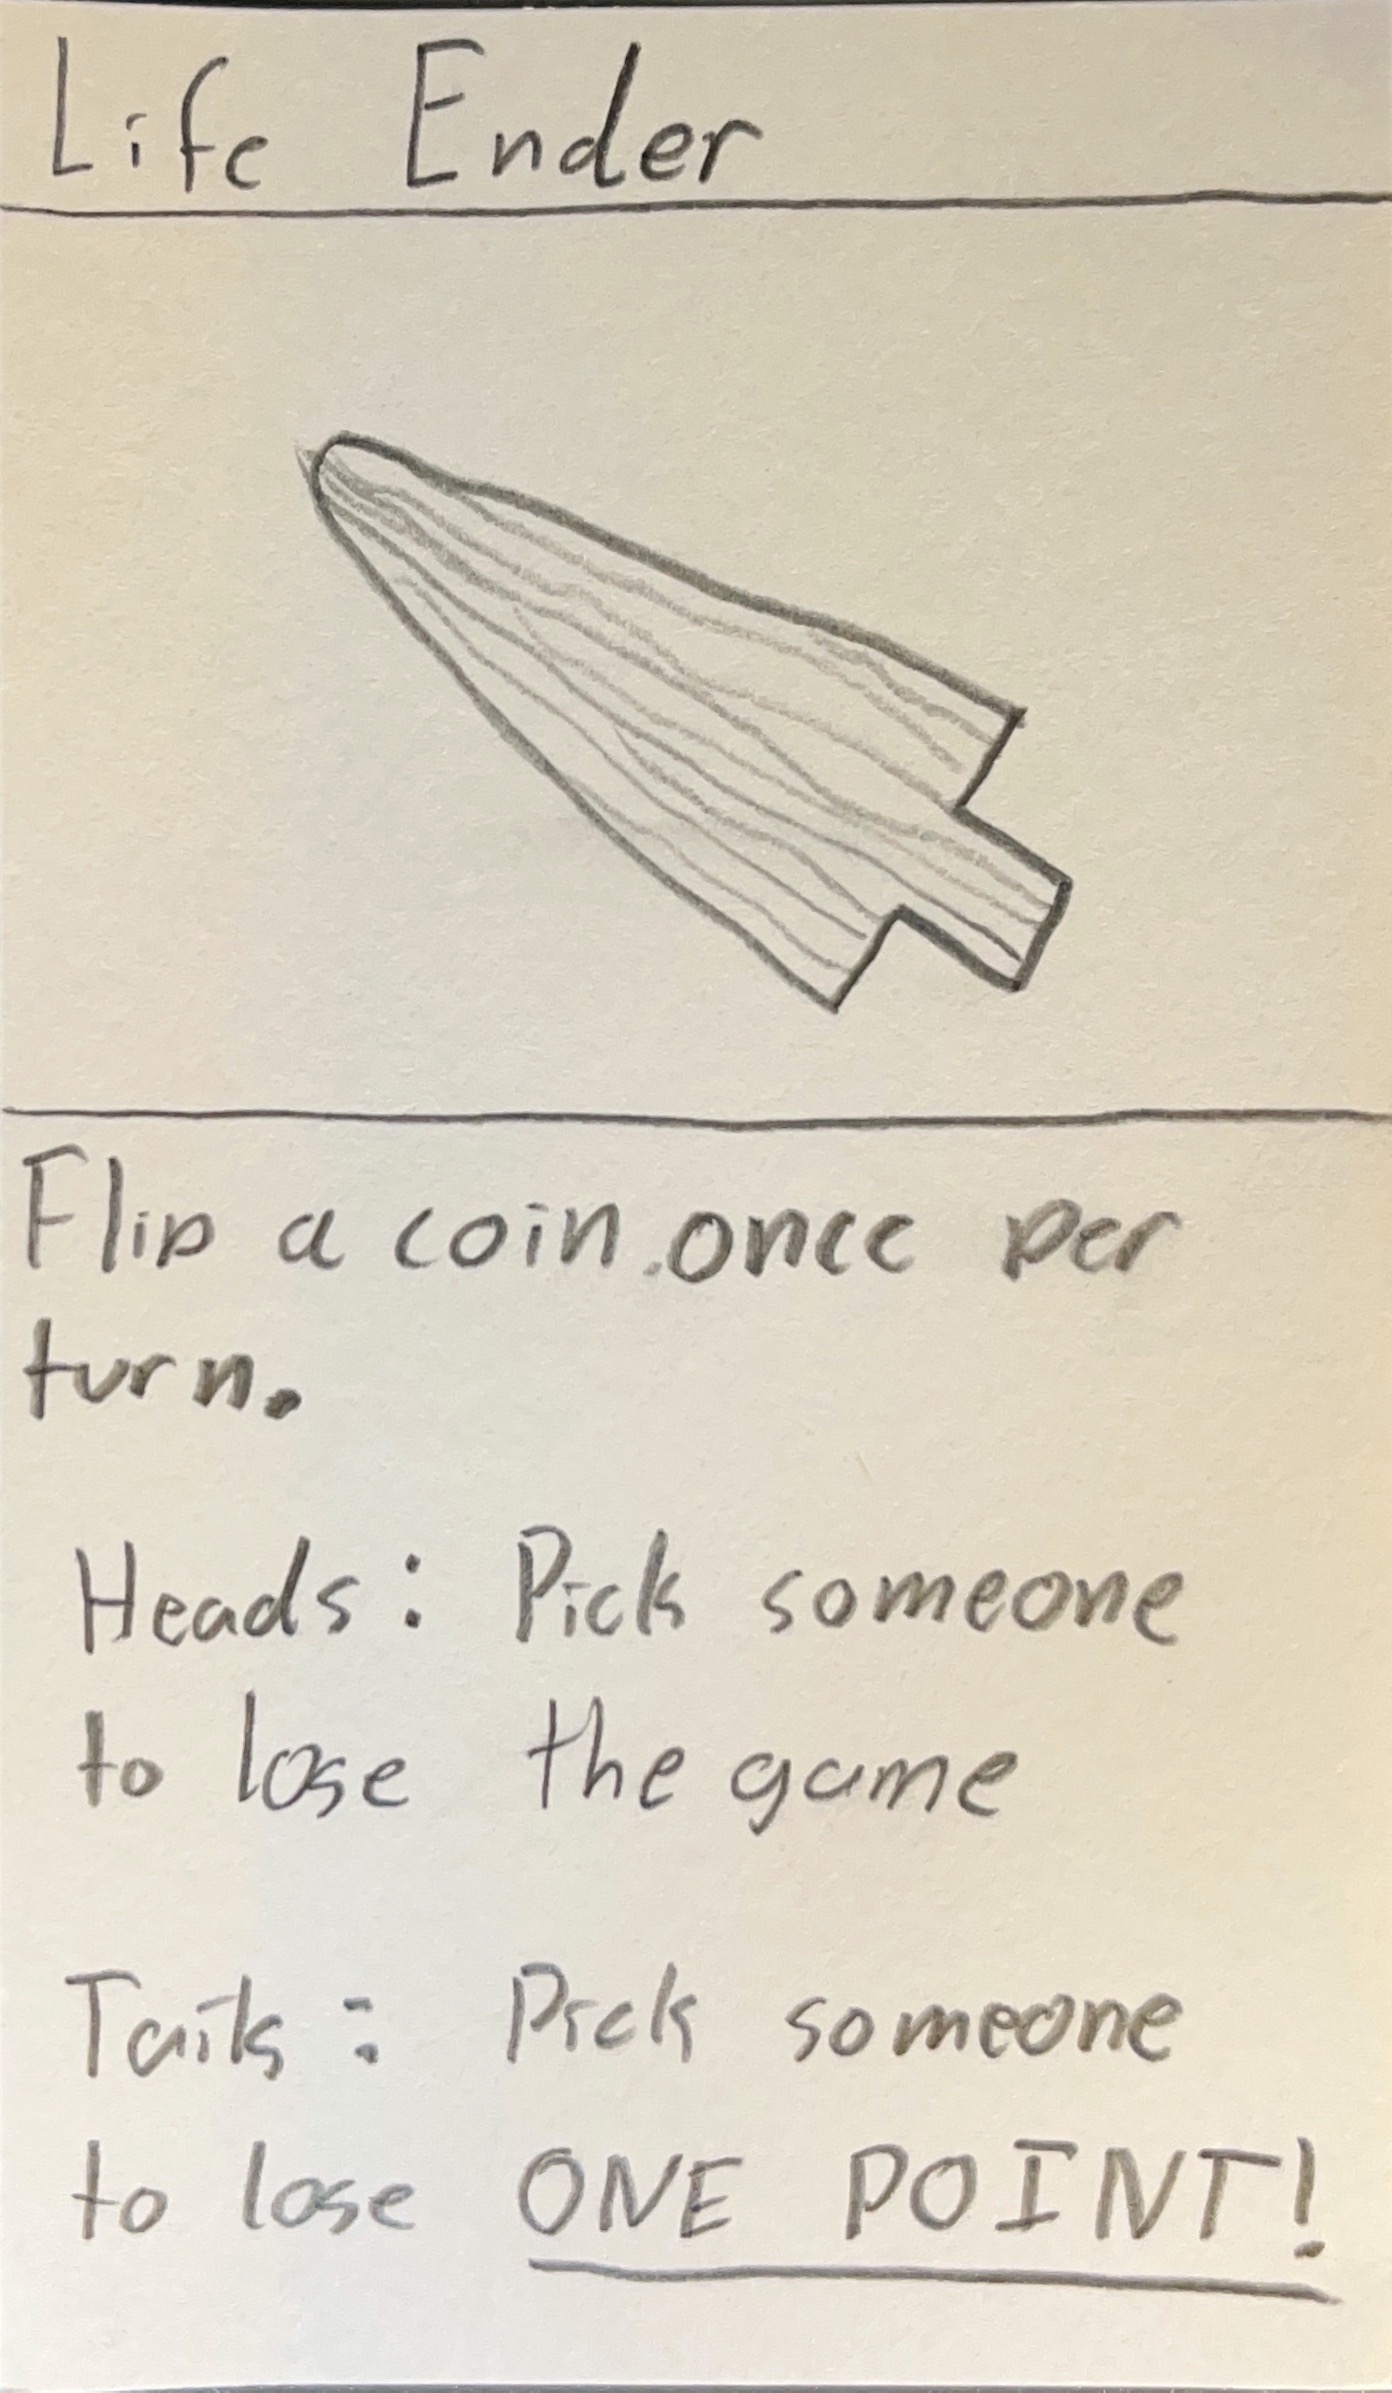 Life Ender
Flip a coin once per
turn.
Heads: Pick someone
to lose the game
Tails: Pick someone
to lose ONE POINT!